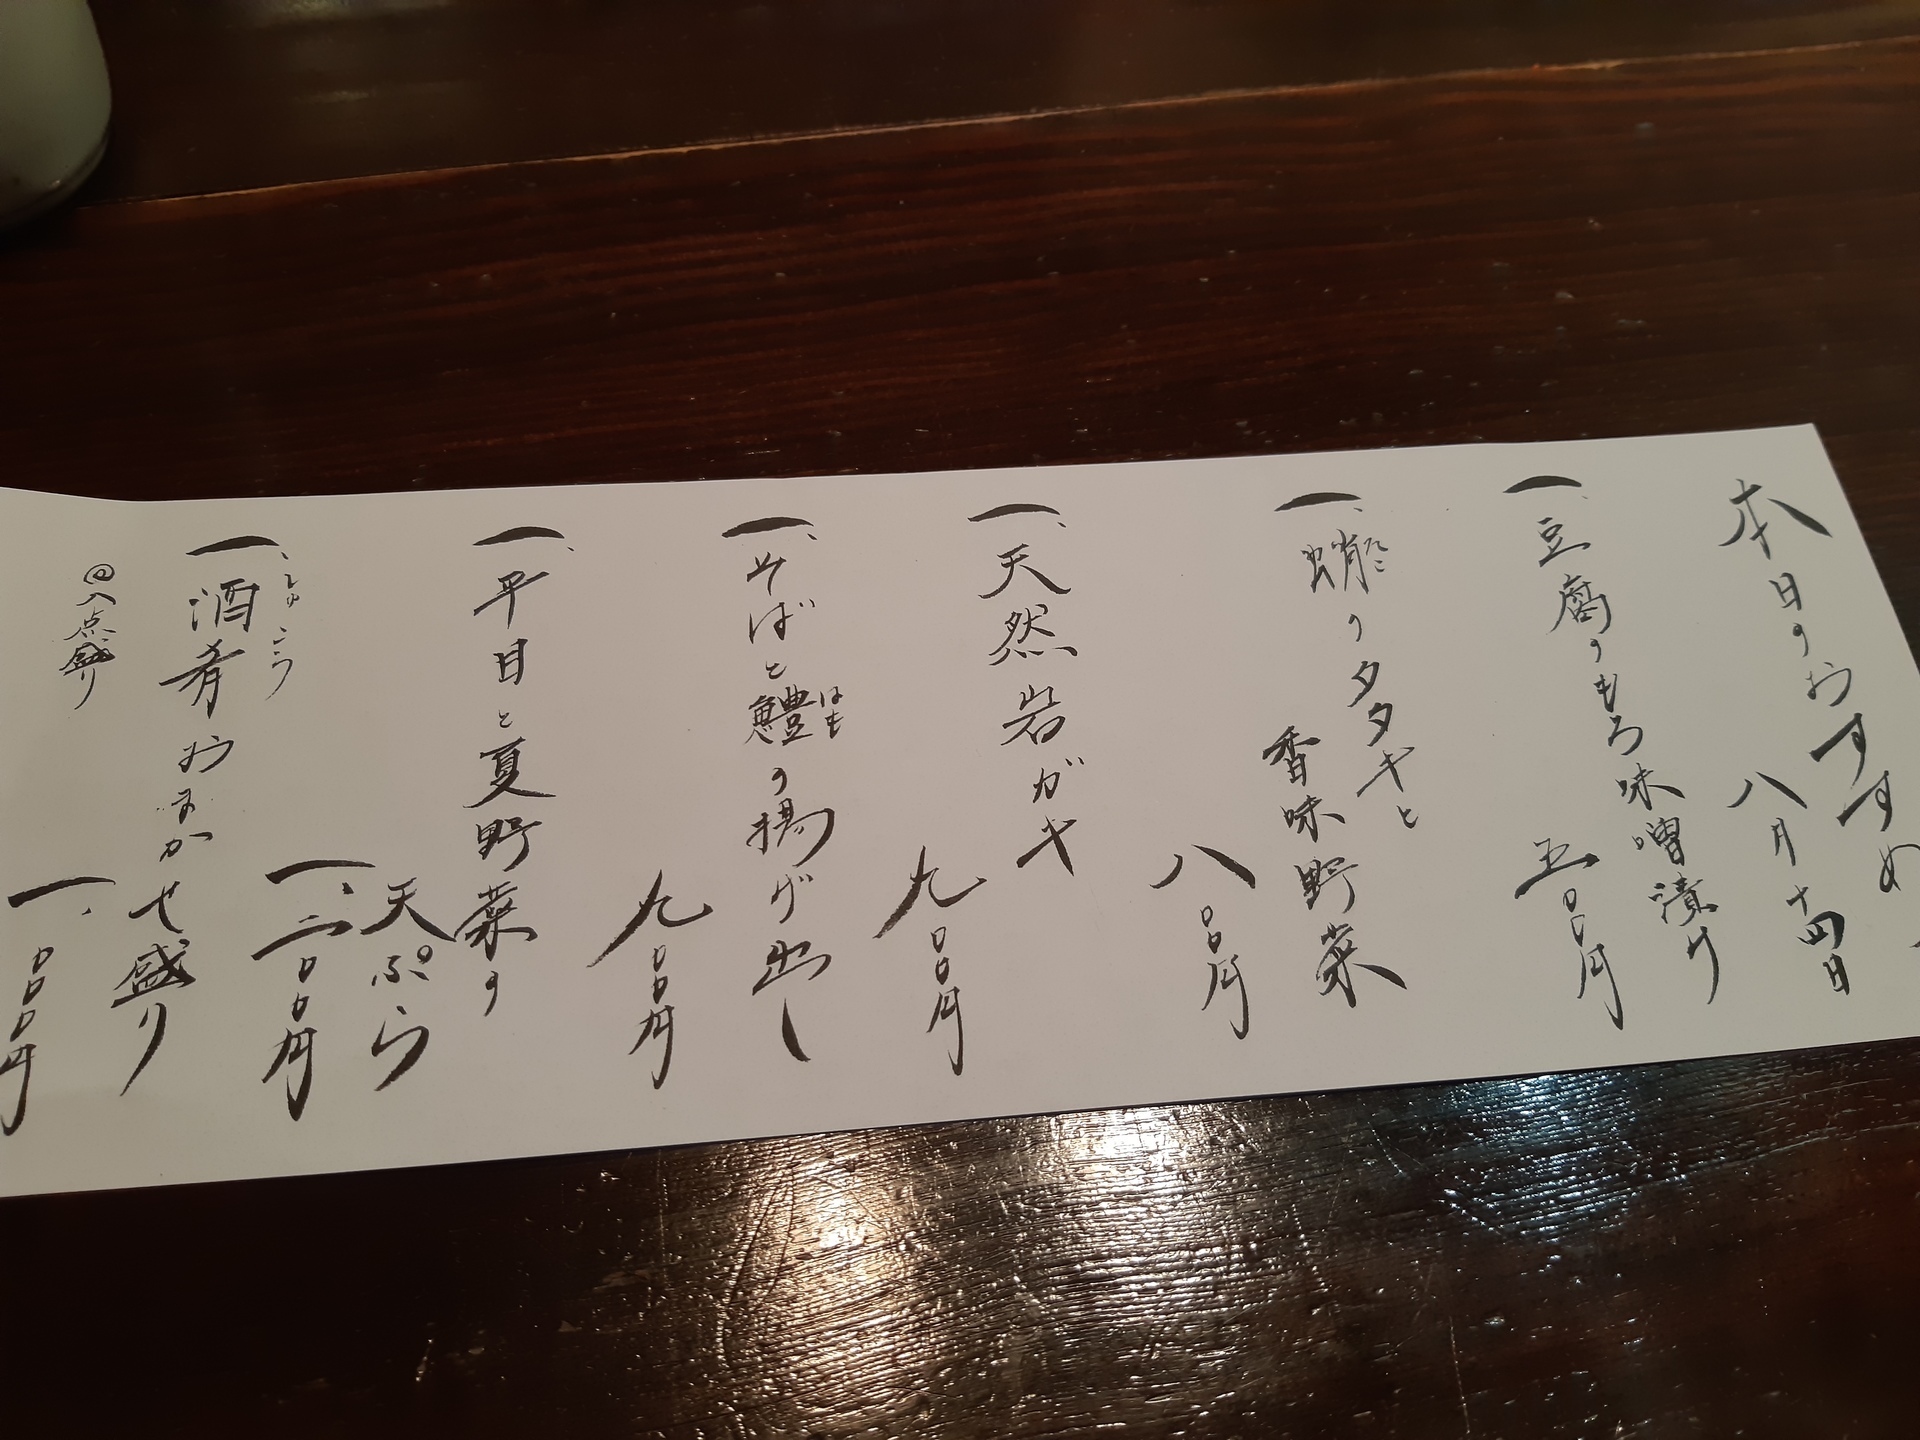 本日のおすすめ
八月十四日
一、豆腐のもろ味噌漬け
五〇〇円
一、蛸のタタキと
たこ
香味野菜
八〇〇円
一、天然岩ガキ
九〇〇円
一、そばと鱧の揚げ出し
はも
九〇〇円
一、平目と夏野菜の
天ぷら
一、二〇〇円
一、酒肴おまかせ盛り
しゅこう
八点盛り
一、〇〇〇円